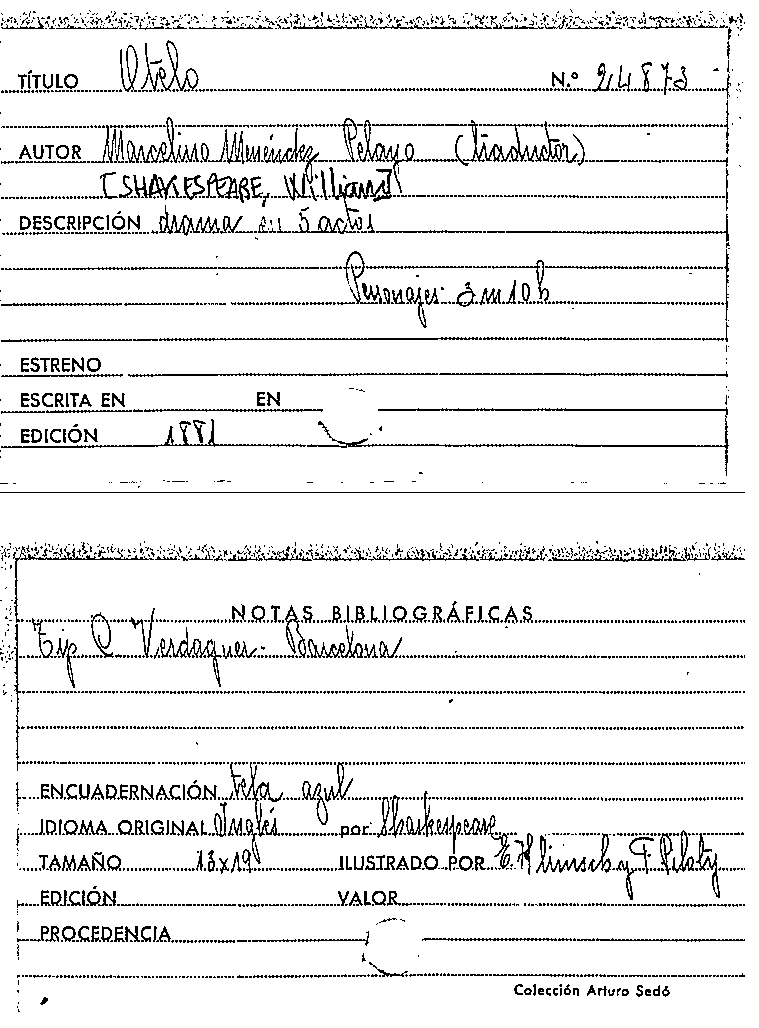 TÍTULO Otelo N.º 24873
AUTOR Marcelino Menéndez Pelayo (traductor)
[SHAKESPEARE, William]
DESCRIPCIÓN drama en 5 actos
Personajes: 3 m 10 h
ESTRENO
ESCRITA EN EN
EDICIÓN 1881
NOTAS BIBLIOGRÁFICAS
Tip C Verdaguer - Barcelona
ENCUADERNACIÓN tela azul
IDIOMA ORIGINAL Inglés por Shackespeare
TAMAÑO 13x19 ILUSTRADO POR E. Klimsch y F. Piloty
EDICIÓN VALOR
PROCEDENCIA
Colección Arturo Sedó